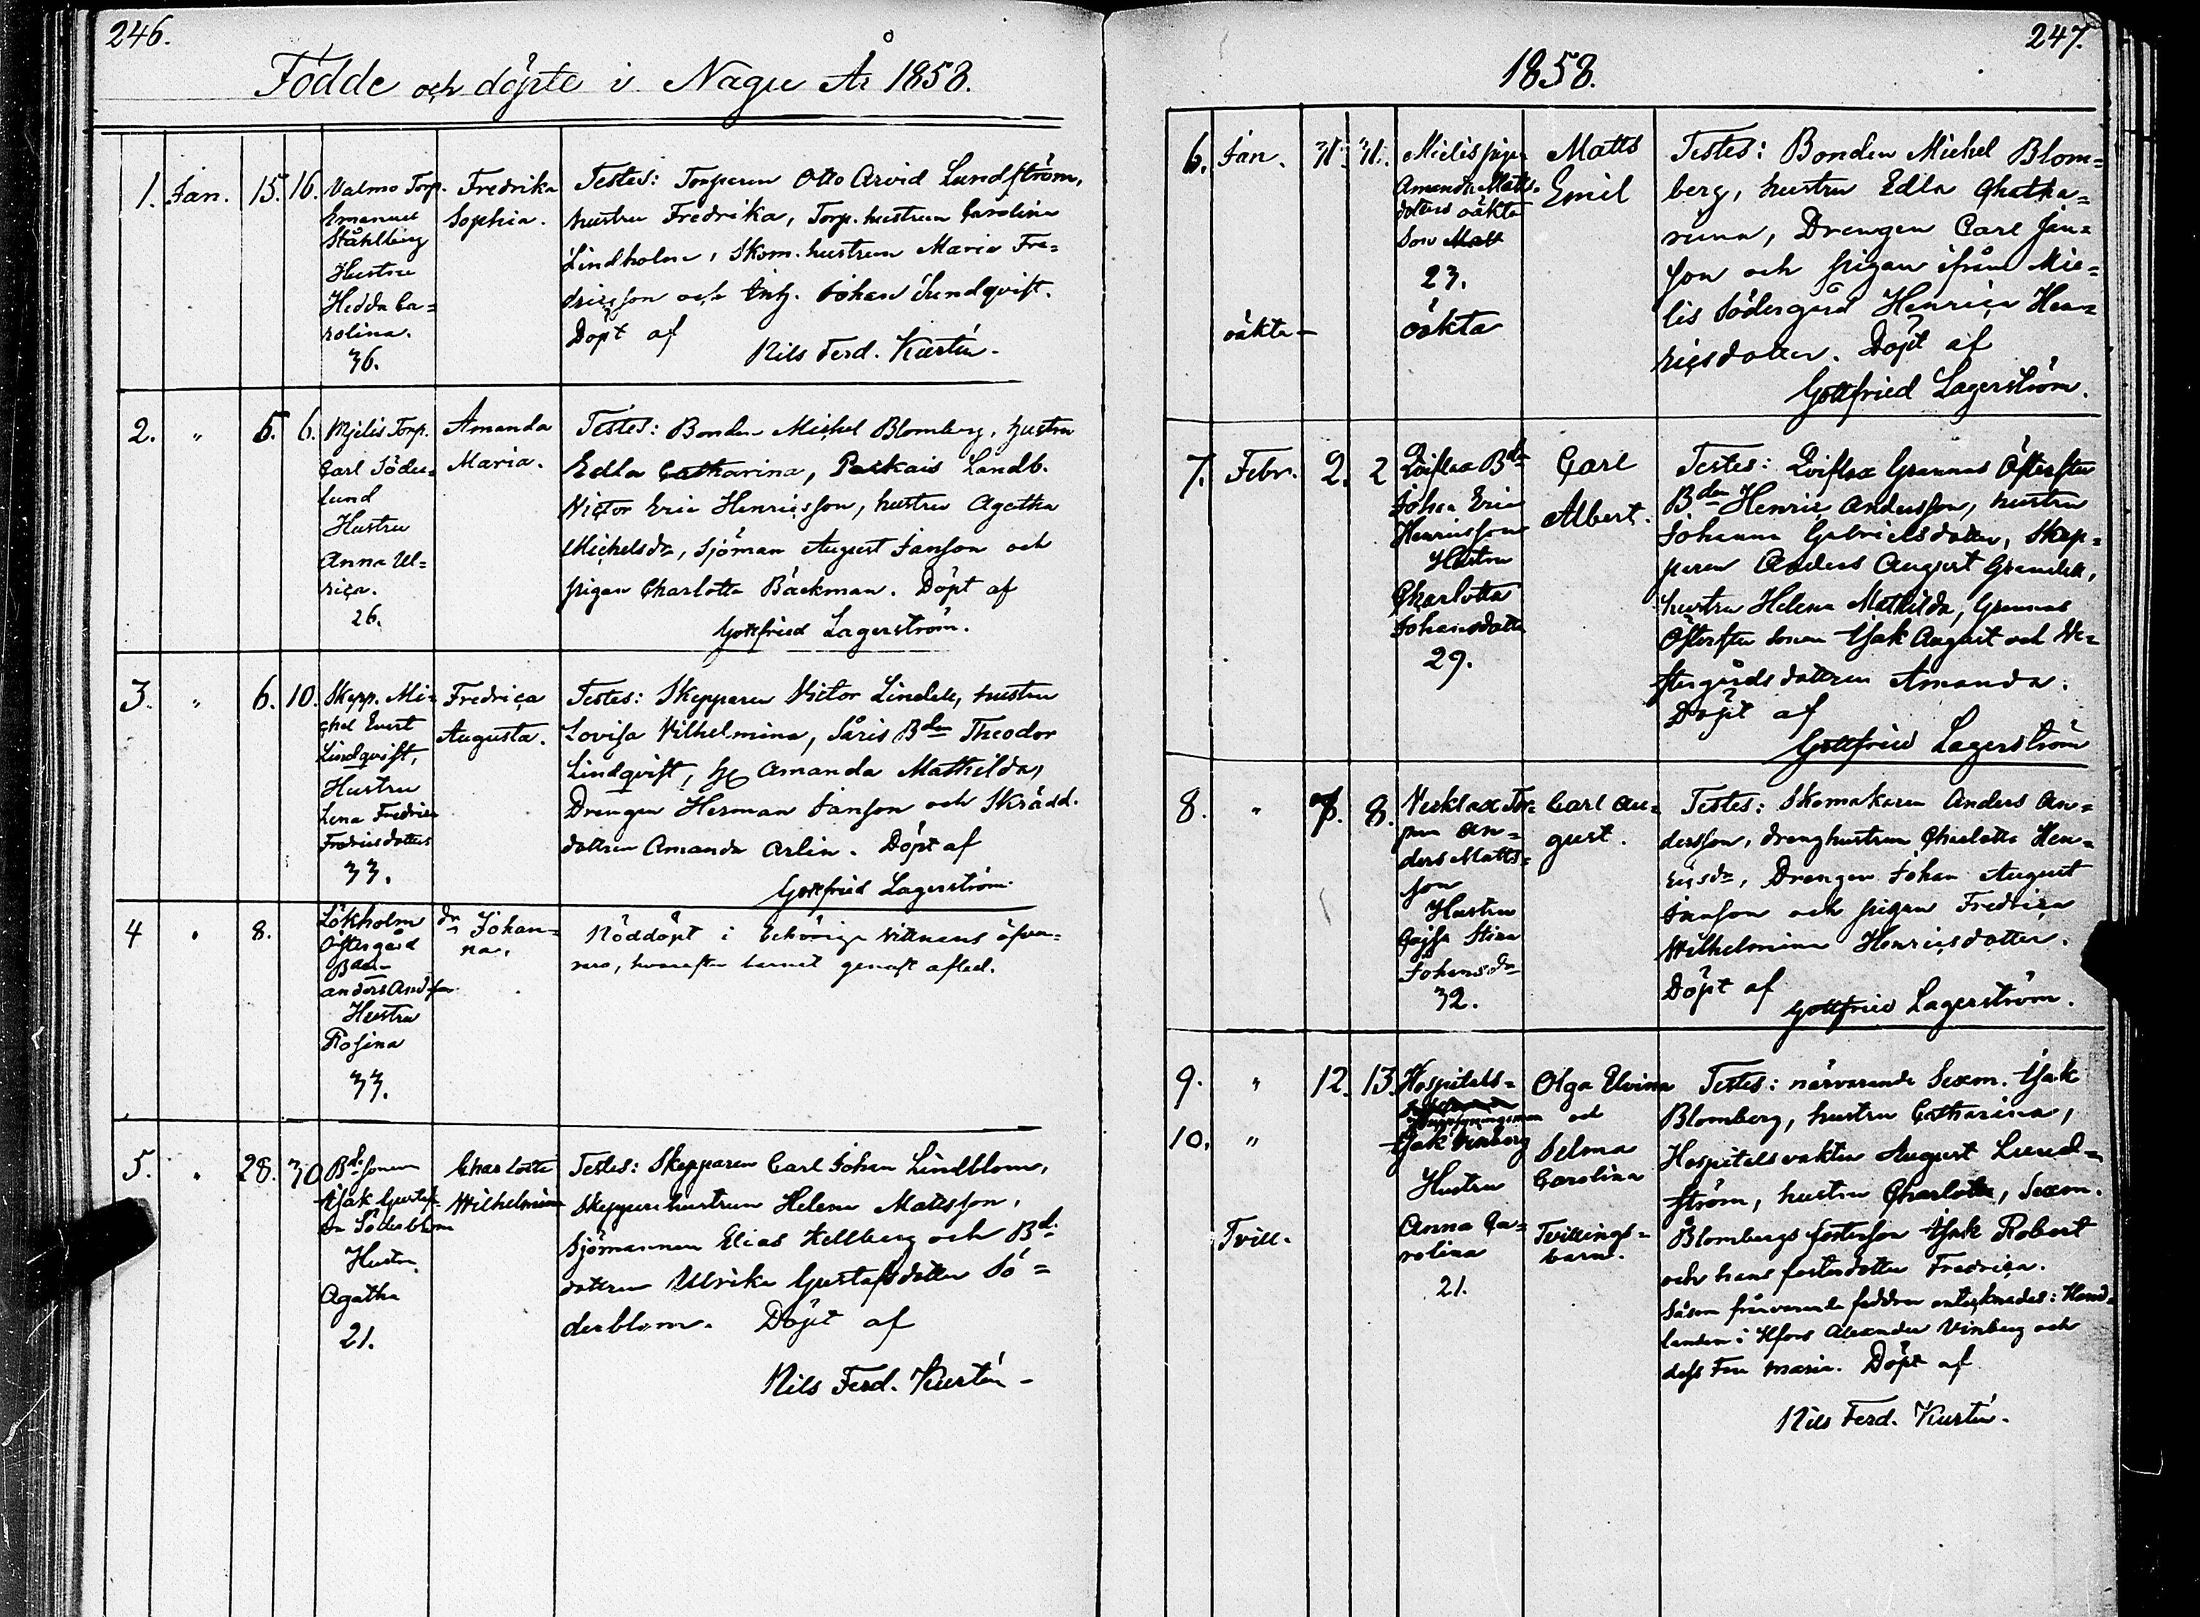 246.
Födde och döpte i Nagu År 1858.
1. Jan. 15. 16.
Valmo Torp.
Emanuel
Ståhlberg
Hustru
Hedda Ca=
rolina.
36.
Fredrika
Sophia.
Testes: Torparen Otto Arvid Lundström,
hustru Fredrika, Torp. hustrun Carolina
Lindholm, Skom. hustrun Maria Fre=
dricsson och Johan Sundqvist.
Döpt af
Nils Ferd. Kurtén.
2. " 5. 6.
Mjelis Torp.
Carl Söder=
lund
Hustru
Anna Ul=
rica.
26.
Amanda
Maria.
Testes: Bonden Michel Blomberg, hustru
Edla Catharina, Parkais Landb.
Victor Eric Henricsson, hustru Agatha
Michelsdr, Sjöman August Janson och
pigan Charlotta Bäckman. Döpt af
Gottfried Lagerström.
3. " 6. 10.
Skepp. Mi=
chel Evert
Lindqvist,
Hustru
Lena Fredrica
Fredricsdotter
33.
Fredrica
Augusta.
Testes: Skepparen Victor Lindell, hustru
Lovisa Vilhelmina, Såris Bden Theodor
Lindqvist, H. Amanda Mathilda,
Drengen Herman Janson och Skrädd.
dottren Amanda Arlin. Döpt af
Gottfried Lagerström.
4 " 8.
Lökholm
Östergård
Bden
Anders Andson
Hustru
Rosina
33.
dr Johan=
na.
Nöddöpt i behöriga vittnens öfver=
varo, hvarefter barnet genast afled.
5. " 28. 30
Bdesonen
Isak Gustaf
Söderblom
Hustru
Agatha
21.
Charlotta
Wilhelmina
Testes: Skepparen Carl Johan Lindblom,
Skepparehustrun Helena Matsson,
Sjömannen Elias Hellberg och Bde
dottren Ulrika Gustafsdotter Sö=
derblom. Döpt af
Nils Ferd. Kurtén
247.
1858.
6. Jan. 31. 31.
oäkta
Mielis pigan
Amanda Matts-
dotters oäkta
Son Matt
23.
oäkta
Matts
Emil
Testes: Bonden Michel Blom=
berg, hustru Edla Chatha=
rina, Drengen Carl Jan=
son och pigan ifrån Mie=
lis Södergård Henrica Hen=
ricsdotter. Döpt af
Gottfried Lagerström.
7. Febr. 2. 2
Qviflax Bden
Johan Eric
Henricsson
Hustru
Charlotta
Johansdotter
29.
Carl
Albert.
Testes: Qviflax Grannas Östersten
Bden Henric Andersson, hustru
Johanna Gabrielsdotter, Skep=
paren Anders August Grandell,
hustru Helena Mathilda, Grannas
Östersten sonen Isak August och Ve=
stergårds dottren Amanda.
Döpt af
Gottfried Lagerström
8. " 7. 8.
Verklax Tor=
paren An=
ders Matts=
son
Hustru
Cajsa Stina
Johansdr
32.
Carl Au=
gust.
Testes: Skomakaren Anders An=
dersson, drenghustrun Charlotta Hen=
ricsdr, Drengen Johan August
Janson och pigan Fredrica
Wilhelmina Henricsdotter.
Döpt af
Gottfried Lagerström.
9. " 12. 13.
10. "
Tvill.
Hospitals=
Isak Vinberg
Hustru
Anna Ca=
rolina
21.
Olga Elvina
och
Selma
Carolina
Tvillings=
barn.
Testes: närvarande Sexm. Isak
Blomberg, hustru Catharina,
Hospitalsvakten August Lund=
ström, hustru Charlotta, Sexm.
Blombergs fosterson Isak Robert
och hans fosterdotter Fredrica.
Såsom frånvarande faddrar antecknades: Hand=
landen i Hfors Alexander Vinberg och
dess Fru Maria. Döpt af
Nils Ferd. Kurtén.